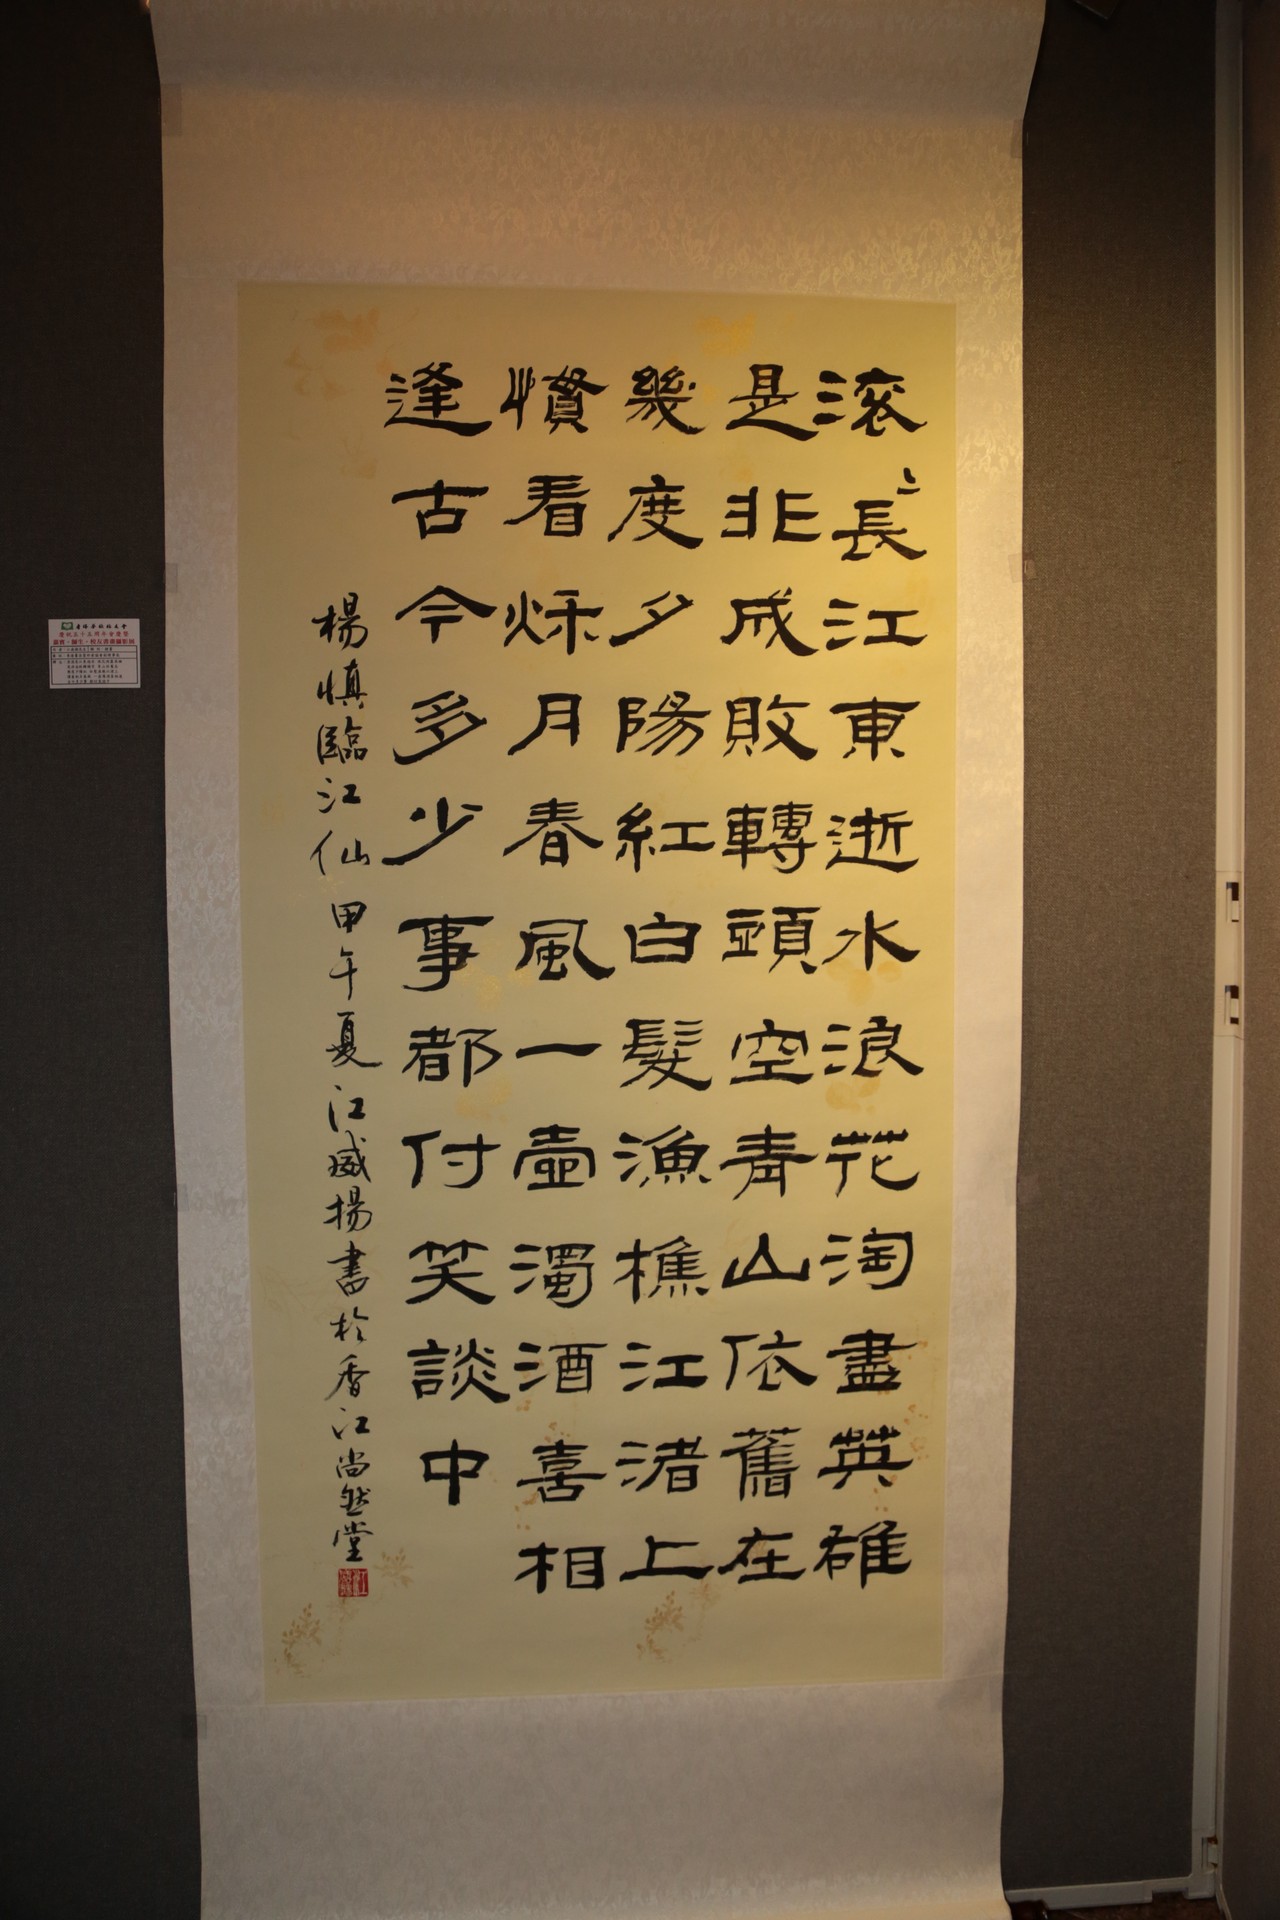 滚〻長江東逝水浪花淘盡英雄
是非成敗轉頭空青山依舊在
幾度夕陽紅白髮漁樵江渚上
慣看秌月春風一壺濁酒喜相
逢古今多少事都付笑談中
楊慎臨江仙 甲午夏江威揚書於香江尚然堂